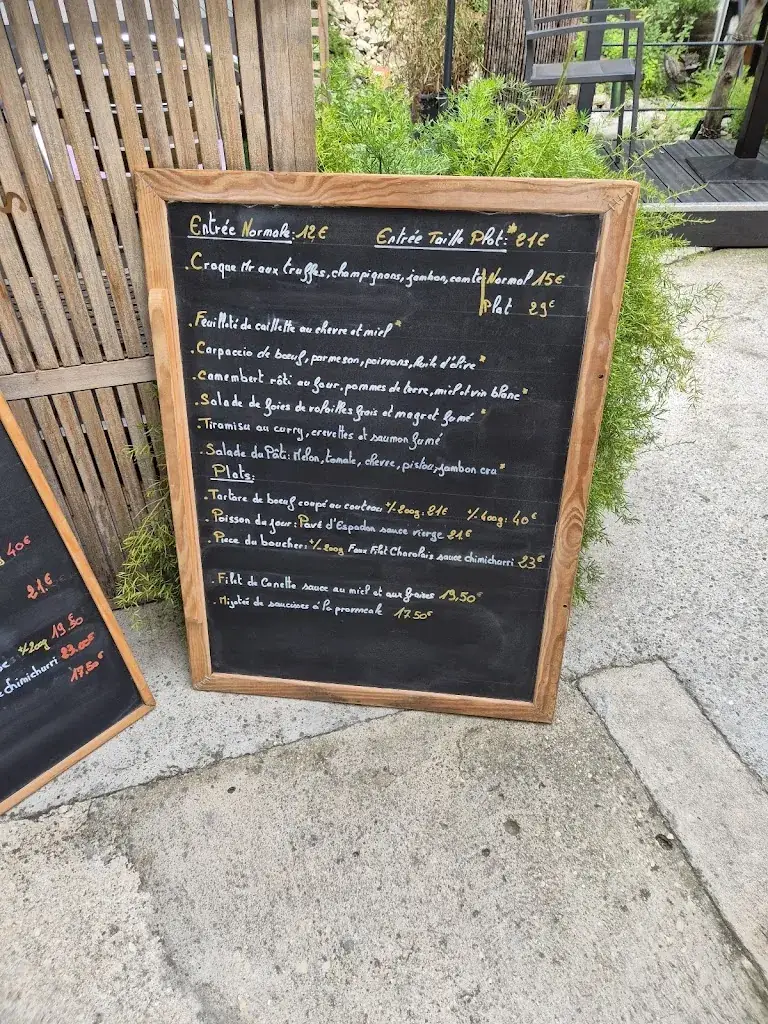 Entrée Normale: 12€ Entrée Taille Plat:* 21€
. Croque Mr aux truffes, champignons, jambon, comté Normal 15€
Plat 29€
. Feuilleté de caillette au chevre et miel *
. Carpaccio de bœuf, parmesan, poivrons, huile d'olive *
. Camembert rôti au four, pommes de terre, miel et vin blanc *
. Salade de foies de volailles frais et magret fumé *
. Tiramisu au curry, crevettes et saumon fumé
. Salade du Pâti: Melon, tomate, chevre, pistou, jambon cru *
Plats:
. Tartare de boeuf coupé au couteau +/- 200g: 21€ +/- 400g: 40€
. Poisson du jour: Pavé d'Espadon sauce vierge 21€
. Piece du boucher: +/- 200g Faux Filet Charolais sauce chimichurri 23€
. Filet de Canette sauce au miel et aux fraises 19,50€
. Mijotée de saucisses à la provencale 17.50€
40€
21€
19.50
+/- 200g 23.00€
chimichurri
17,50€